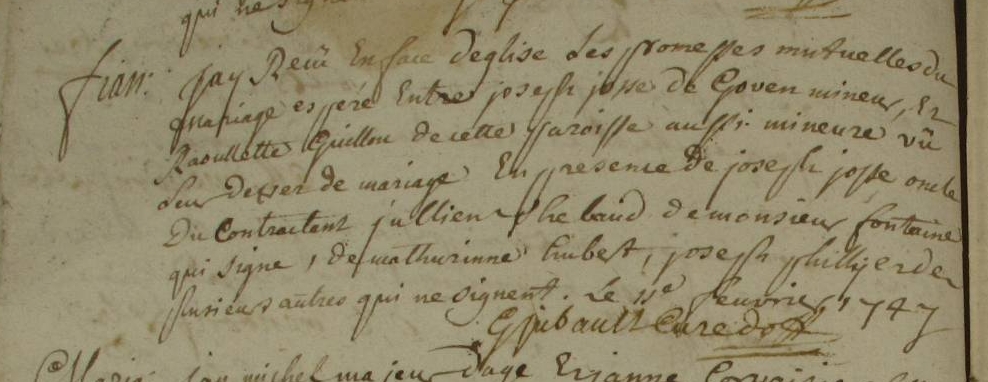 qui ne signe
fian: jay Reçu En face deglise Les promesses mutuelles du
mariage esperé Entre joseph josse de Goven mineur, Et
Raoullette Guillou de cette paroisse aussi mineure vû
leur de mariage En presence de joseph josse oncle
Du Contractant jullien thebaud de monsieur fontaine
qui signe, de mathurinne hubert, joseph et de
plusieurs autres qui ne signent. Le 11e feuvrier 1747
Gjubault Curé doff
Marie jan michel majeur dage Et janne